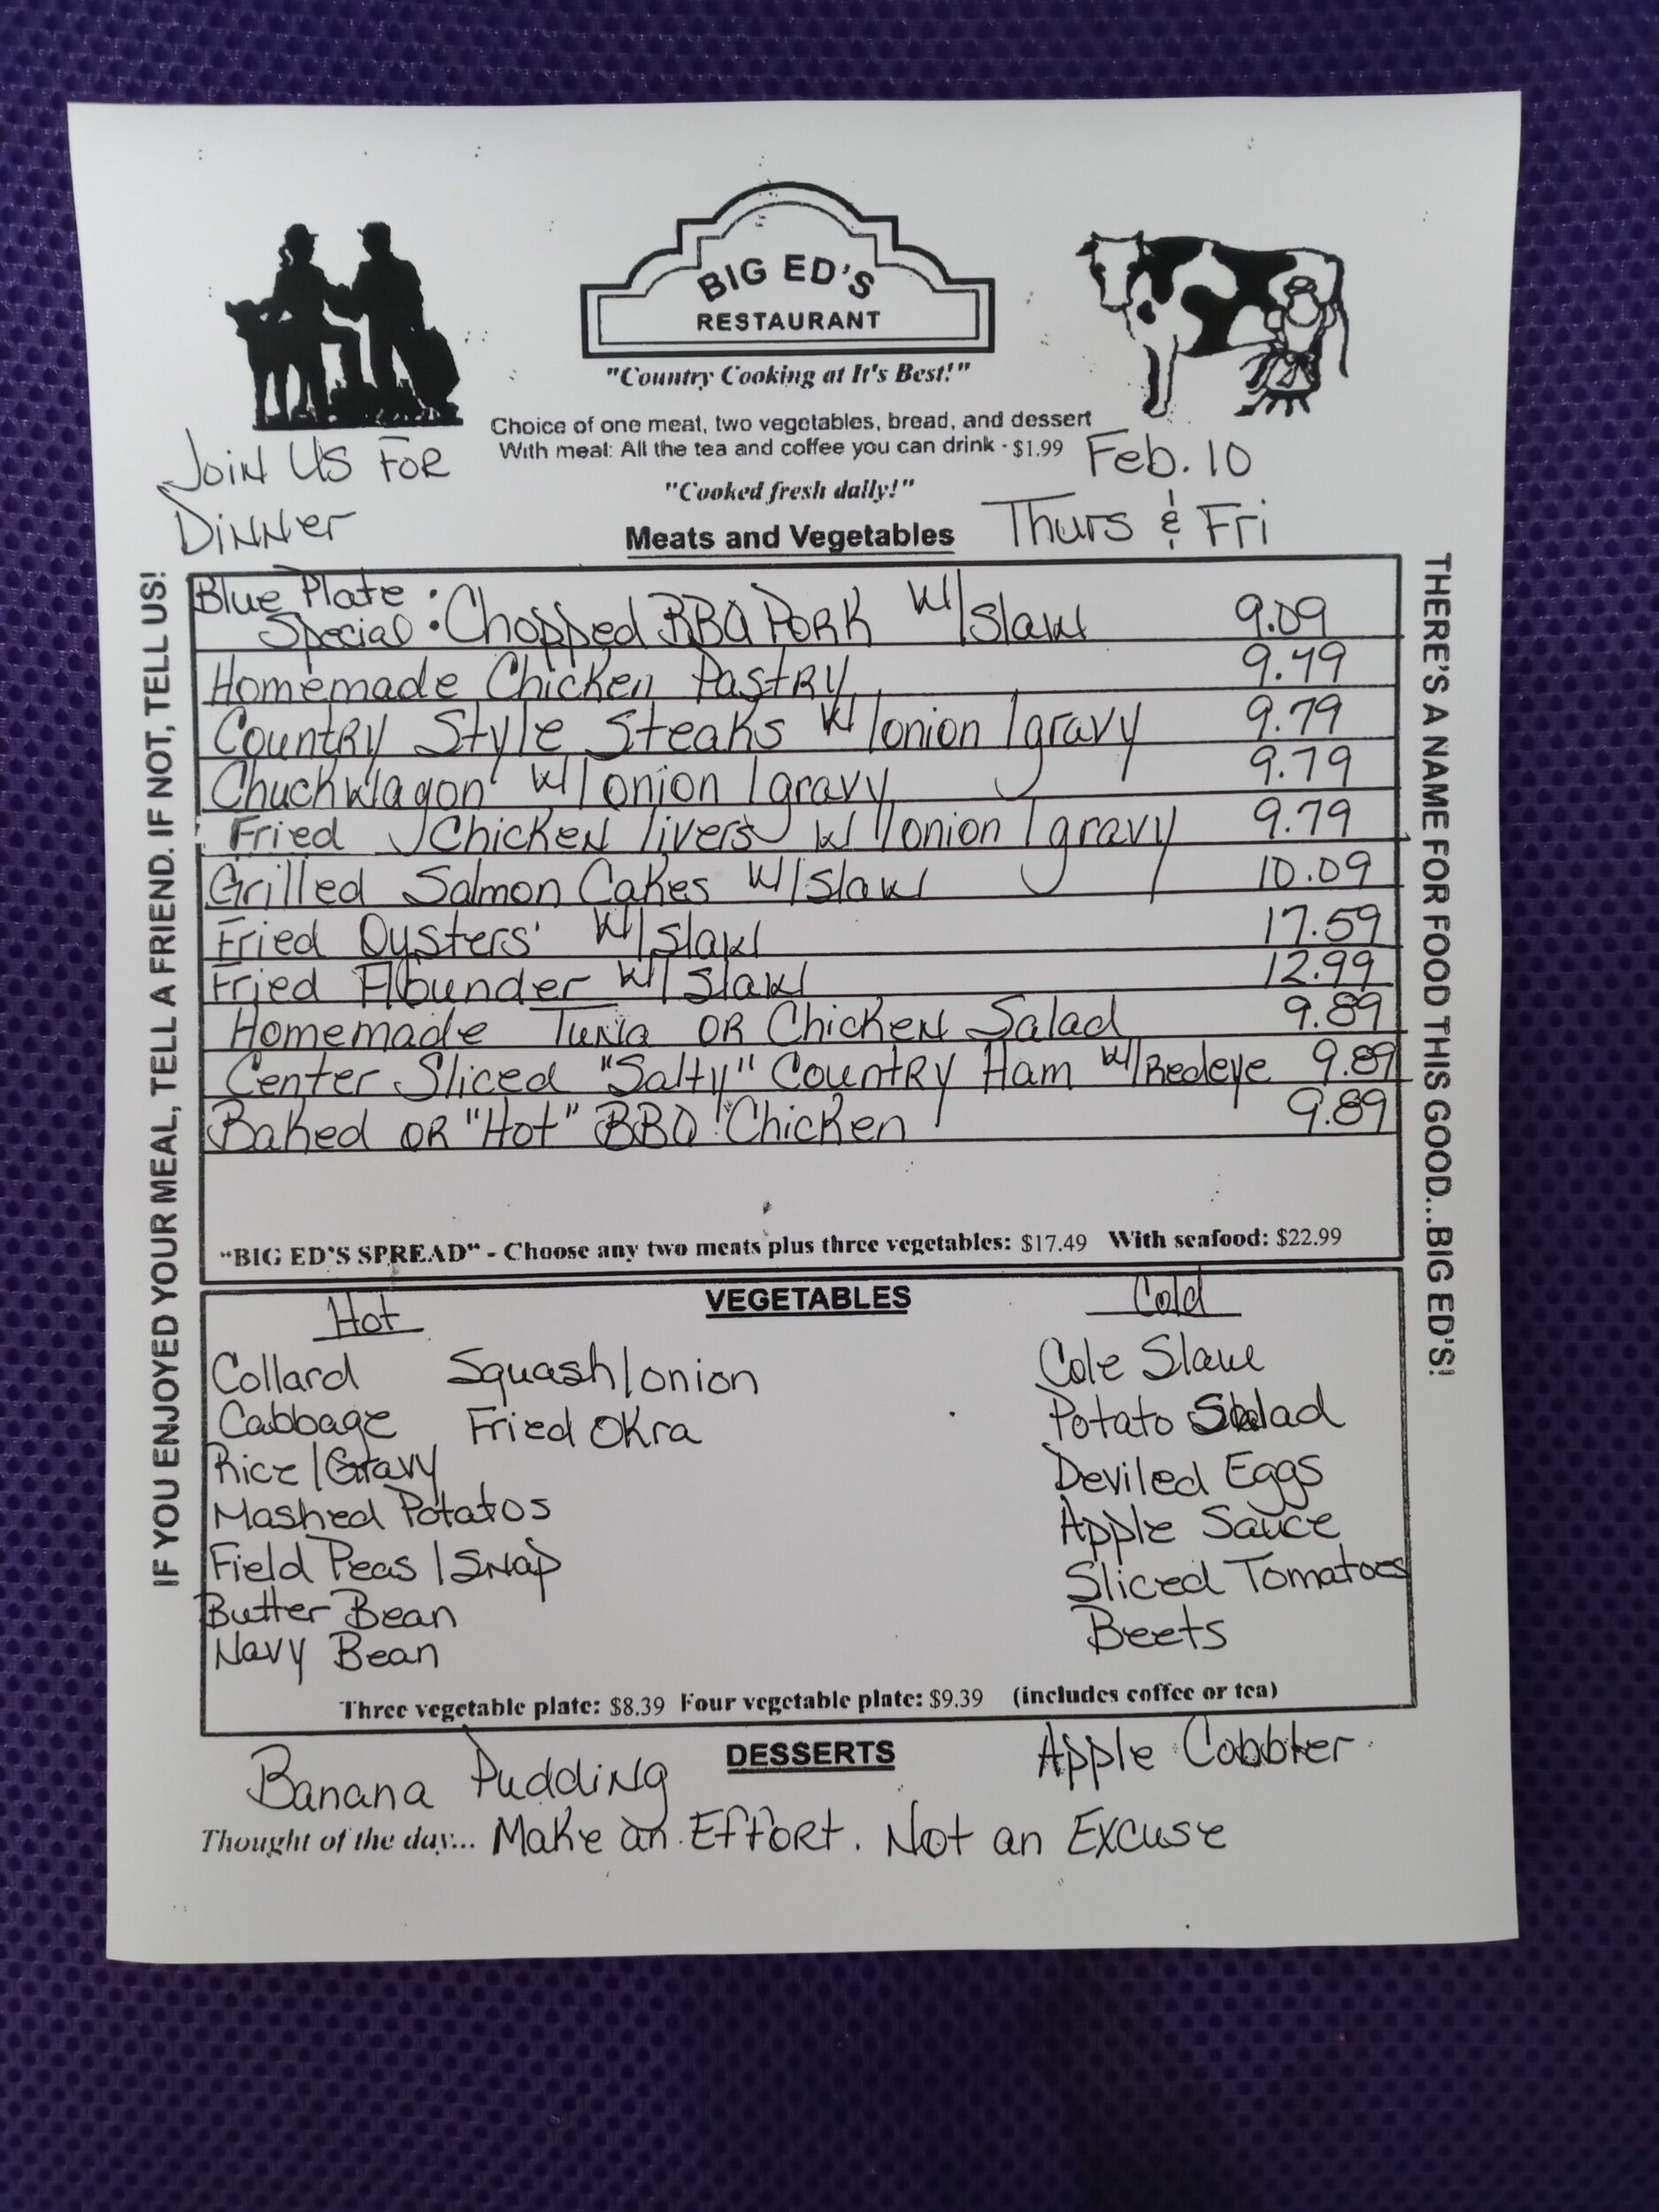 BIG ED'S
RESTAURANT
"Country Cooking at It's Best!"
Choice of one meat, two vegetables, bread, and dessert
With meal: All the tea and coffee you can drink - $1.99
"Cooked fresh daily!"
Join Us For
Dinner
Feb. 10
Thurs & Fri
Meats and Vegetables
Blue Plate Special: Chopped BBQ Pork W/Slaw 9.09
Homemade Chicken Pastry 9.49
Country Style Steaks W/onion/gravy 9.79
Chuckwagon W/onion/gravy 9.79
Fried Chicken livers W/onion/gravy 9.79
Grilled Salmon Cakes W/Slaw 10.09
Fried Oysters W/Slaw 17.59
Fried Flounder W/Slaw 12.99
Homemade Tuna OR Chicken Salad 9.89
Center Sliced "Salty" Country Ham W/Redeye 9.89
Baked OR "Hot" BBQ Chicken 9.89
"BIG ED'S SPREAD" - Choose any two meats plus three vegetables: $17.49 With seafood: $22.99
VEGETABLES
Hot
Collard
Cabbage
Rice/Gravy
Mashed Potatos
Field Peas/Snap
Butter Bean
Navy Bean
Squash/onion
Fried Okra
Cold
Cole Slaw
Potato Salad
Deviled Eggs
Apple Sauce
Sliced Tomatoes
Beets
Three vegetable plate: $8.39 Four vegetable plate: $9.39 (includes coffee or tea)
DESSERTS
Banana Pudding
Apple Cobbler
Thought of the day... Make an Effort. Not an Excuse
IF YOU ENJOYED YOUR MEAL, TELL A FRIEND. IF NOT, TELL US!
THERE'S A NAME FOR FOOD THIS GOOD...BIG ED'S!